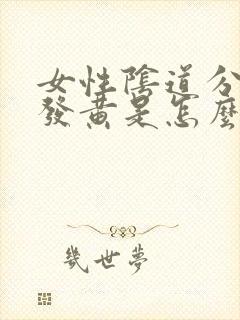 女性陰道分
發黃是怎麼
幾世夢